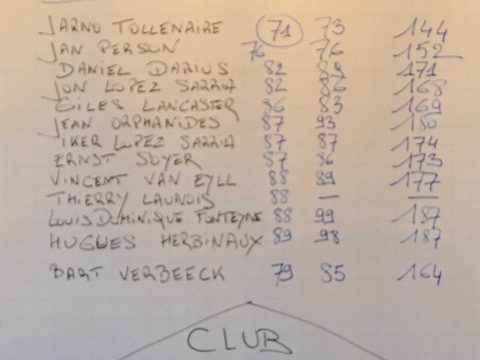 JARNO TOLLENAIRE 71 73 144
JAN PERSON 76 76 152
DANIEL DARIUS 82 89 171
JON LOPEZ SARRIA 82 86 168
GILES LANCASTER 86 83 169
JEAN ORPHANIDES 87 93 180
IKER LOPEZ SARRIA 87 87 174
ERNST SOYER 87 86 173
VINCENT VAN EYLL 88 89 177
THIERRY LAUNOIS 88 — —
LOUIS DOMINIQUE FONTEYNE 88 99 187
HUGUES HERBINAUX 89 98 187
BART VERBEECK 79 85 164
CLUB